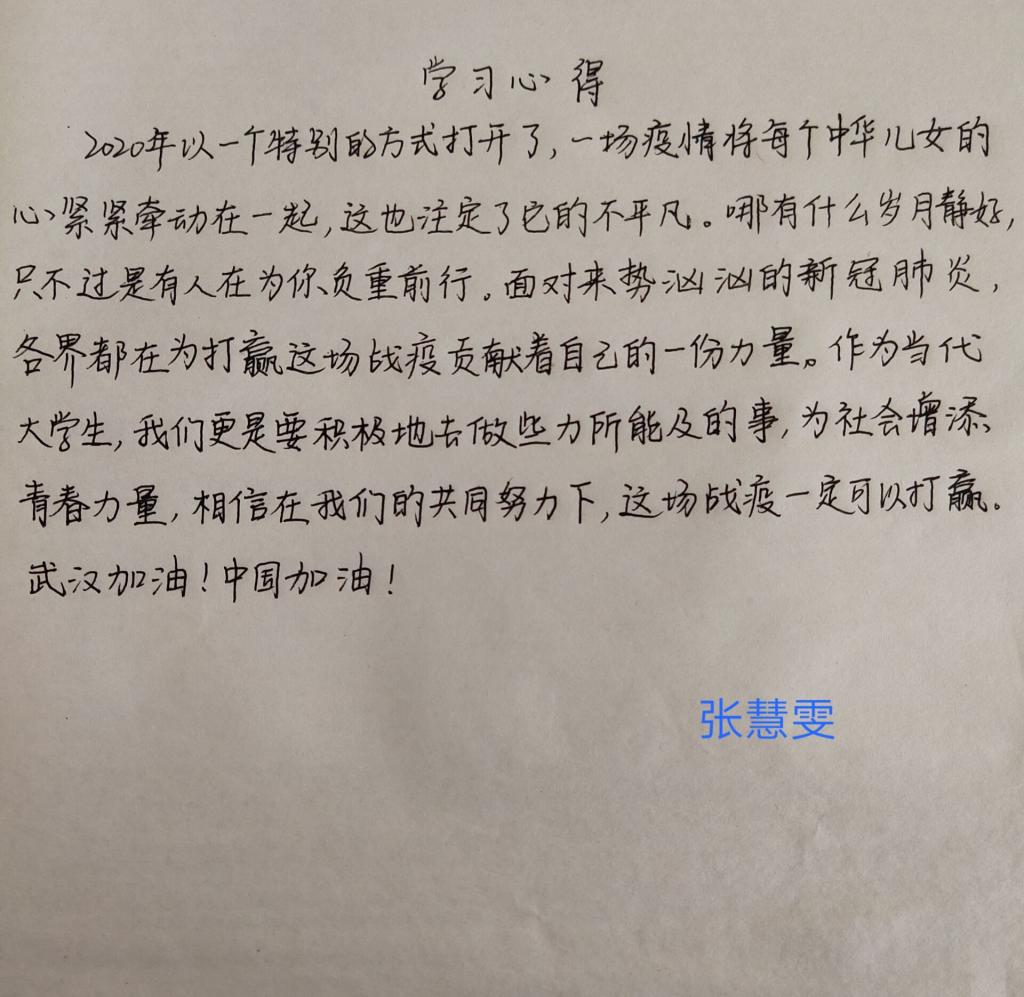 学习心得
2020年以一个特别的方式打开了,一场疫情将每个中华儿女的
心紧紧牵动在一起,这也注定了它的不平凡。哪有什么岁月静好,
只不过是有人在为你负重前行。面对来势汹汹的新冠肺炎,
各界都在为打赢这场战疫贡献着自己的一份力量。作为当代
大学生,我们更是要积极地去做些力所能及的事,为社会增添
青春力量,相信在我们的共同努力下,这场战疫一定可以打赢。
武汉加油!中国加油!
张慧雯